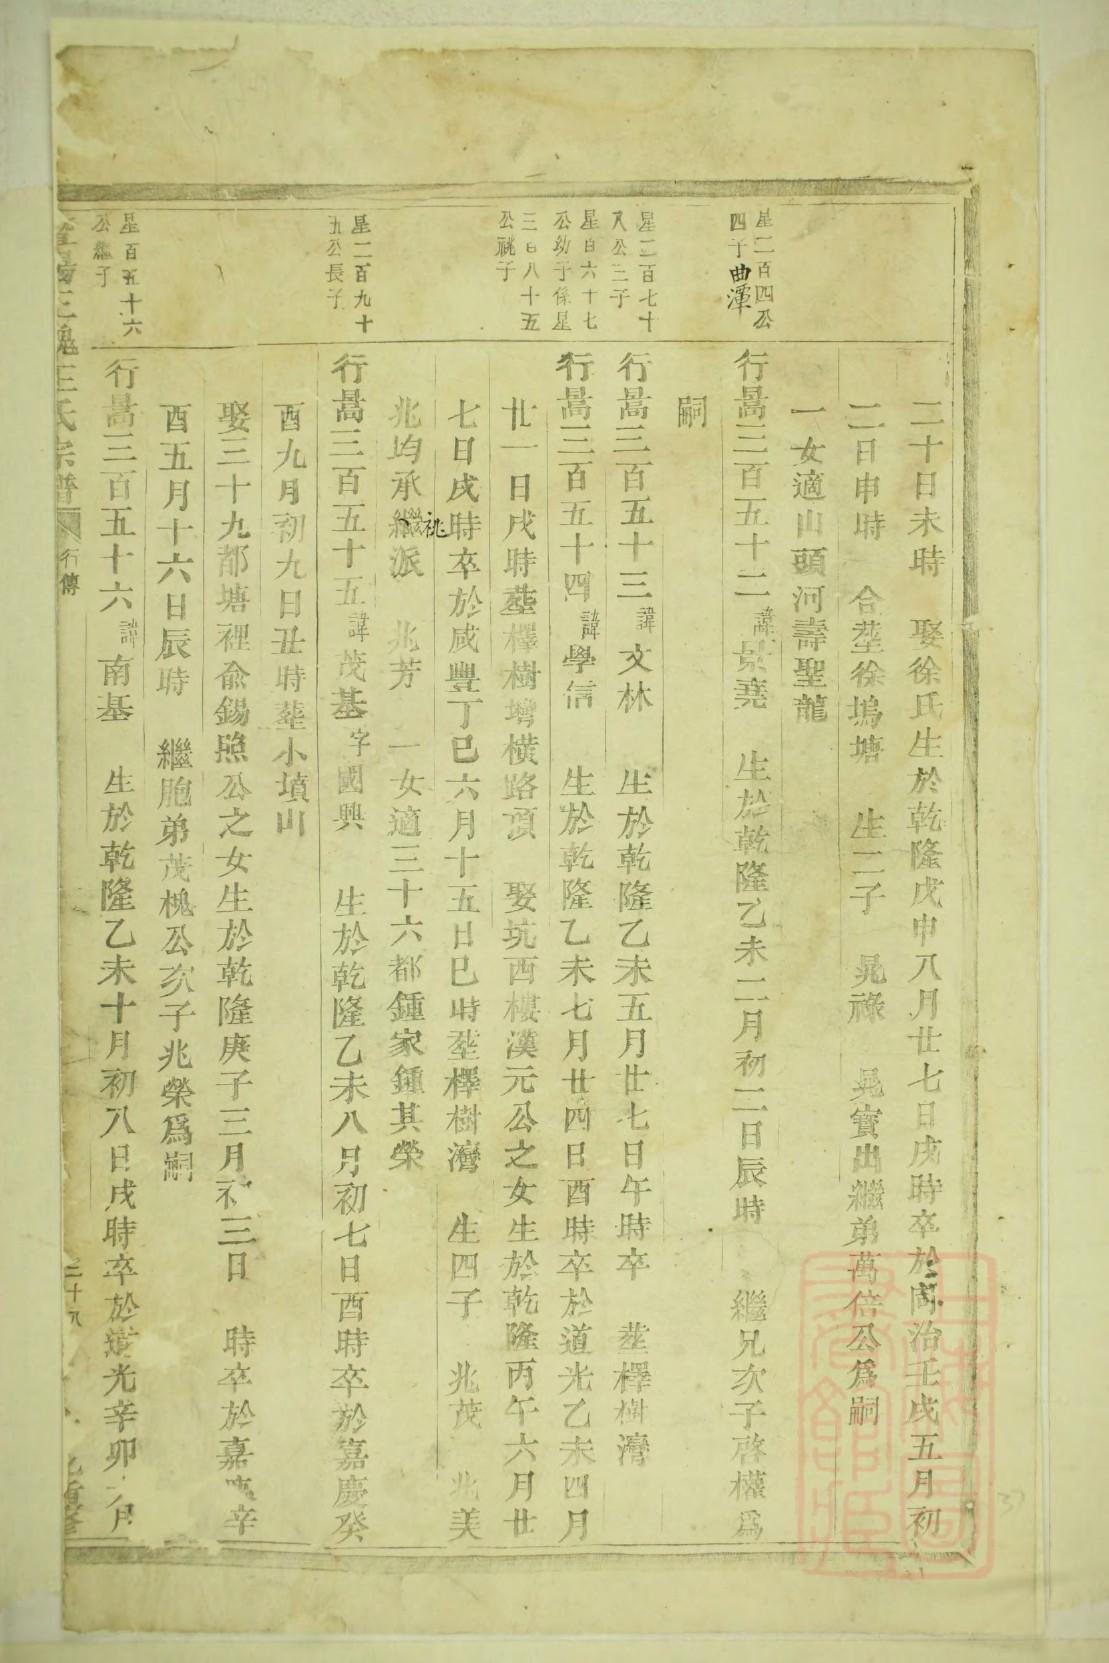 二十日未時　娶徐氏生於乾隆戊申八月廿七日戌時卒於同治壬戌五月初
二日申時　合塟徐塢塘　生二子　晁祿　晁實出繼弟萬倍公爲嗣
一女適山頭河壽聖龍
星二百四公
四子曲潭
行暠三百五十二諱景堯　生於乾隆乙未二月初二日辰時　繼兄次子啓權爲
嗣
星二百七十
八公三子
行暠三百五十三諱文林　生於乾隆乙未五月廿七日午時卒　塟檡樹灣
星百六十七
公幼子係星
三百八十五
公祧子
行暠三百五十四諱學信　生於乾隆乙未七月廿四日酉時卒於道光乙未四月
廿一日戌時塟檡樹灣橫路頂　娶坑西樓漢元公之女生於乾隆丙午六月廿
七日戌時卒於咸豐丁巳六月十五日巳時塟檡樹灣　生四子　兆茂　兆美
兆均承繼祧派　兆芳　一女適三十六都鍾家鍾其榮
星二百九十
五公長子
行暠三百五十五諱茂基字國興　生於乾隆乙未八月初七日酉時卒於嘉慶癸
酉九月初九日丑時塟小墳山
娶三十九都塘裡俞錫照公之女生於乾隆庚子三月初三日　時卒於嘉慶辛
酉五月十六日辰時　繼胞弟茂槐公次子兆榮爲嗣
星百五十六
公繼子
行暠三百五十六諱南基　生於乾隆乙未十月初八日戌時卒於道光辛卯六月
三槐王氏宗譜　行傳　重修